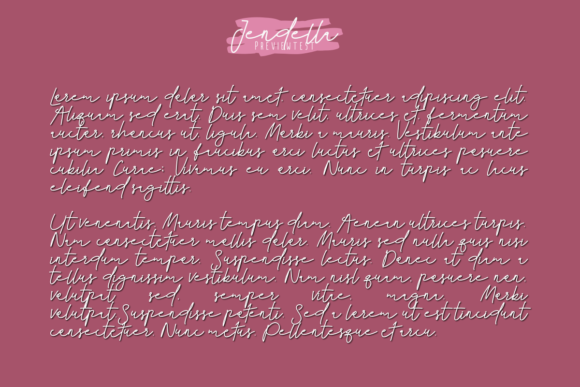 Jendella
PREVIEW TEXT
Lorem ipsum dolor sit amet, consectetuer adipiscing elit.
Aliquam sed erat. Duis sem velit, ultrices et, fermentum
auctor, rhoncus ut, ligula. Morbi a mauris. Vestibulum ante
ipsum primis in faucibus orci luctus et ultrices posuere
cubilia Curae; Vivamus eu orci. Nunc in turpis ac lacus
eleifend sagittis.
Ut venenatis. Mauris tempus diam. Aenean ultrices turpis.
Nam consectetuer mollis dolor. Mauris sed nulla quis nisi
interdum tempor. Suspendisse lectus. Donec at diam a
tellus dignissim vestibulum. Nam nisl quam, posuere non,
volutpat sed, semper vitae, magna. Morbi
volutpat. Suspendisse potenti. Sed a lorem ut est tincidunt
consectetuer. Nunc metus. Pellentesque et arcu.